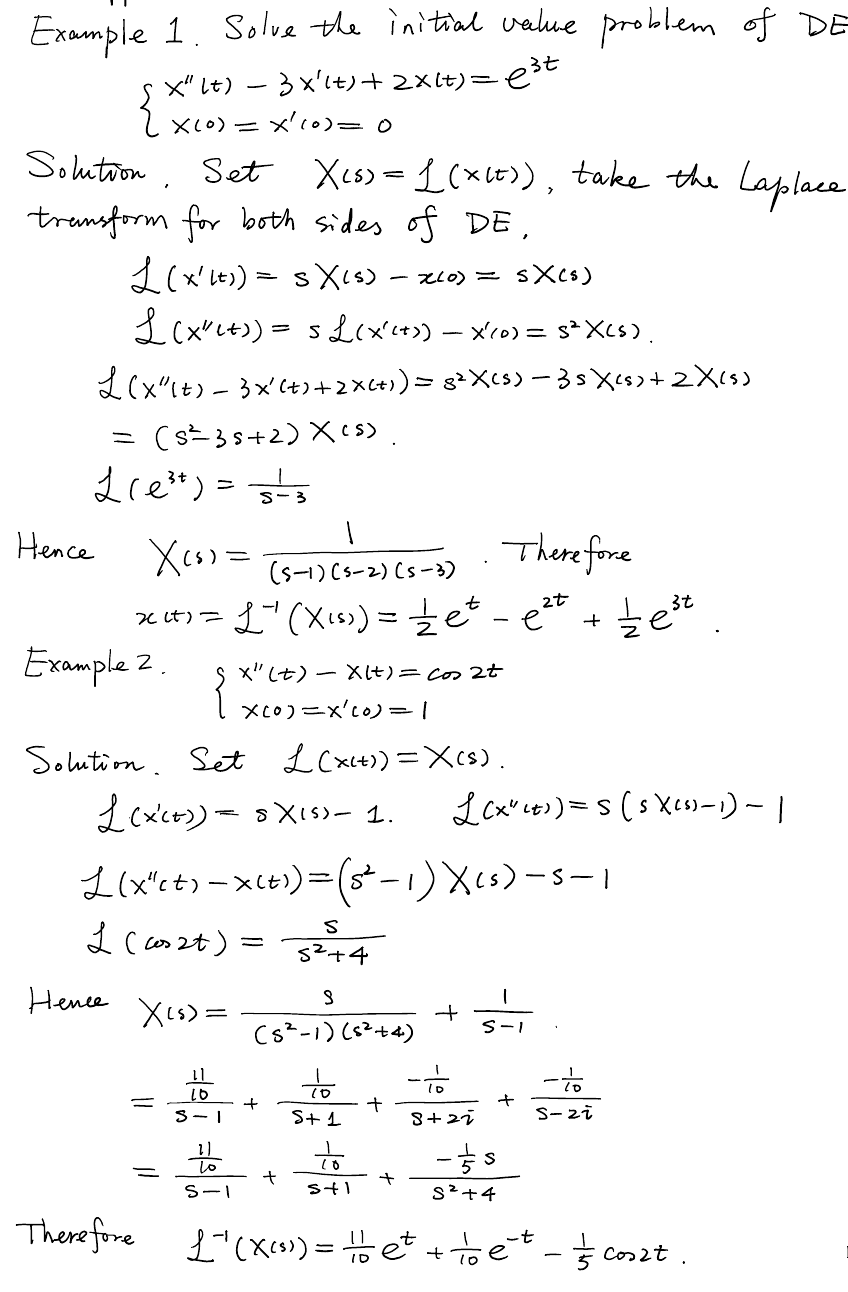 Example 1. Solve the initial value problem of DE
{ x''(t) − 3x'(t) + 2x(t) = e^{3t}
x(0) = x'(0) = 0
Solution. Set X(s) = ℒ(x(t)), take the Laplace
transform for both sides of DE,
ℒ(x'(t)) = sX(s) − x(0) = sX(s)
ℒ(x''(t)) = sℒ(x'(t)) − x'(0) = s²X(s).
ℒ(x''(t) − 3x'(t) + 2x(t)) = s²X(s) − 3sX(s) + 2X(s)
= (s² − 3s + 2)X(s).
ℒ(e^{3t}) = 1/(s−3)
Hence X(s) = 1/((s−1)(s−2)(s−3)). Therefore
x(t) = ℒ⁻¹(X(s)) = 1/2 e^t − e^{2t} + 1/2 e^{3t}.
Example 2. { x''(t) − x(t) = cos 2t
x(0) = x'(0) = 1
Solution. Set ℒ(x(t)) = X(s).
ℒ(x'(t)) = sX(s) − 1. ℒ(x''(t)) = s(sX(s) − 1) − 1
ℒ(x''(t) − x(t)) = (s² − 1)X(s) − s − 1
ℒ(cos 2t) = s/(s²+4)
Hence X(s) = s/((s²−1)(s²+4)) + 1/(s−1).
= (11/10)/(s−1) + (1/10)/(s+1) + (−1/10)/(s+2i) + (−1/10)/(s−2i)
= (11/10)/(s−1) + (1/10)/(s+1) + (−1/5 s)/(s²+4)
Therefore ℒ⁻¹(X(s)) = 11/10 e^t + 1/10 e^{−t} − 1/5 cos2t.